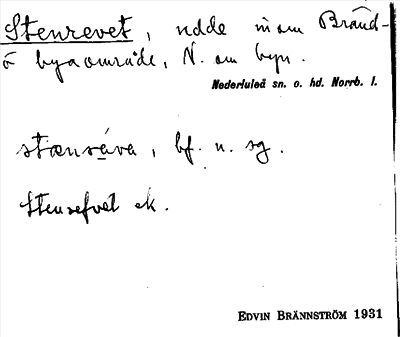 Stenrevet, udde inom Bränd-
ö byaområde, N. om byn.
Nederluleå sn. o. hd. Norrb. l.
stænrǻva, bf. n. sg.
Stenrefvet ek.
EDVIN BRÄNNSTRÖM 1931